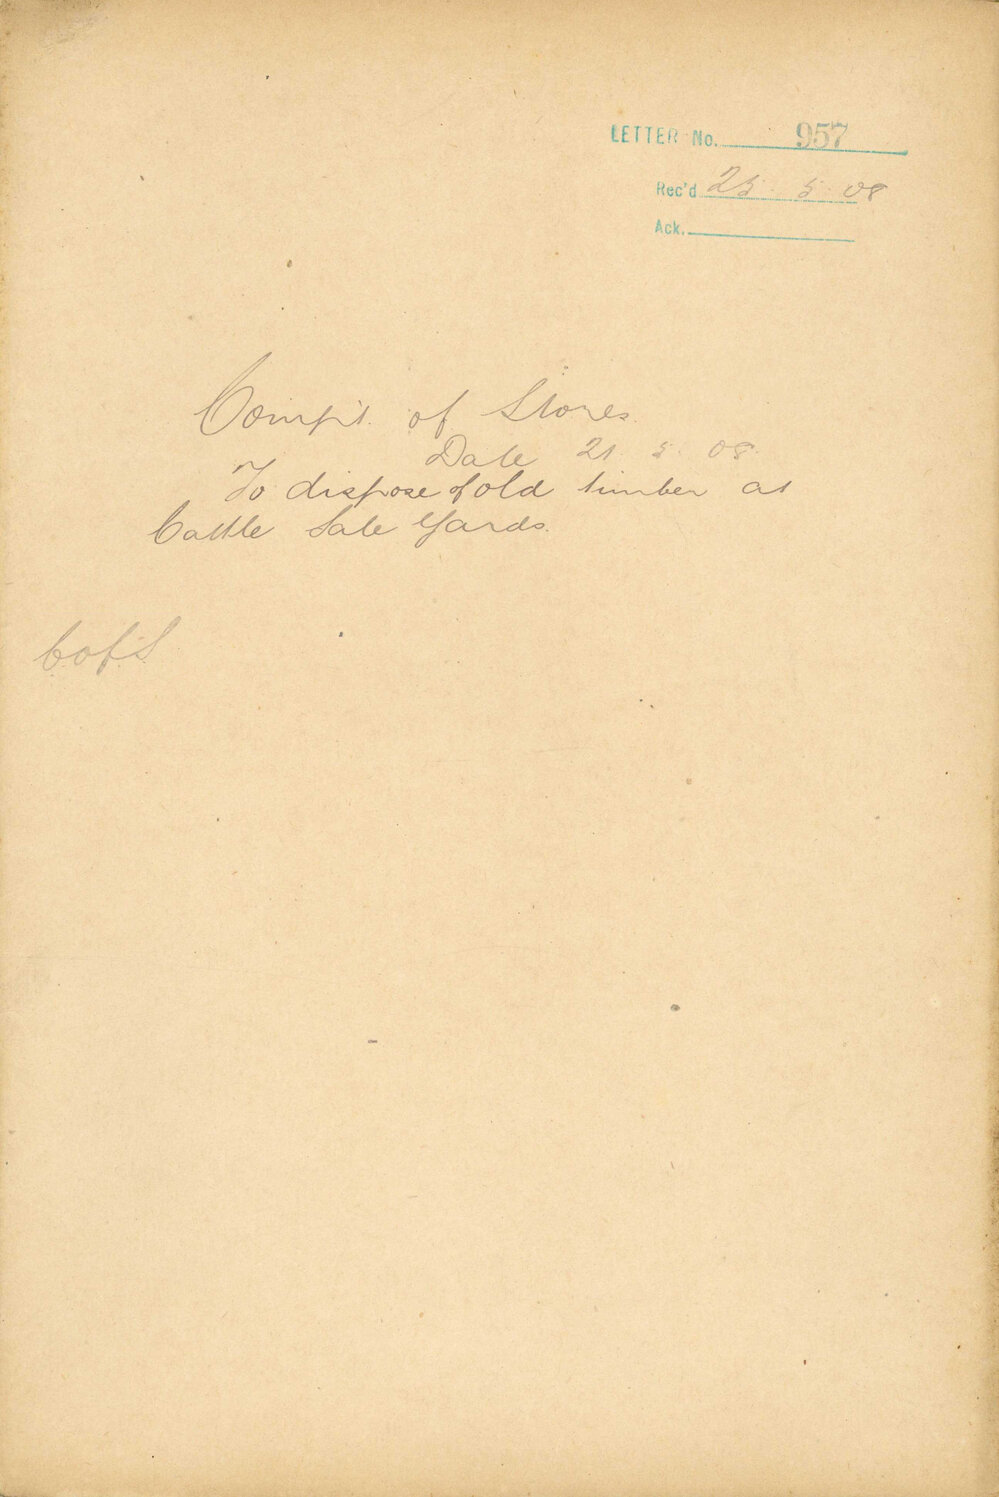 LETTER No. 957
Rec'd 25. 5. 08
Ack.
Compt. of Stores.
Date 21. 5. 08.
To dispose of old timber at
Cattle Sale Yards.
C of S